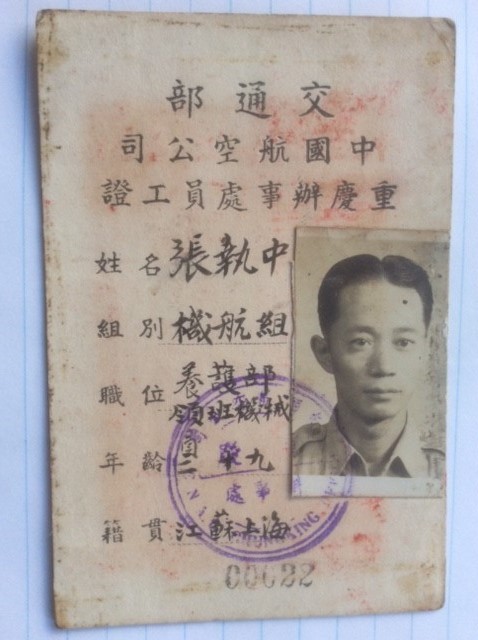 交通部
中國航空公司
重慶辦事處員工證
姓名 張執中
組別 機航組
職位 養護部
領班機械
員
年齡 二十九
籍貫 江蘇上海
00622